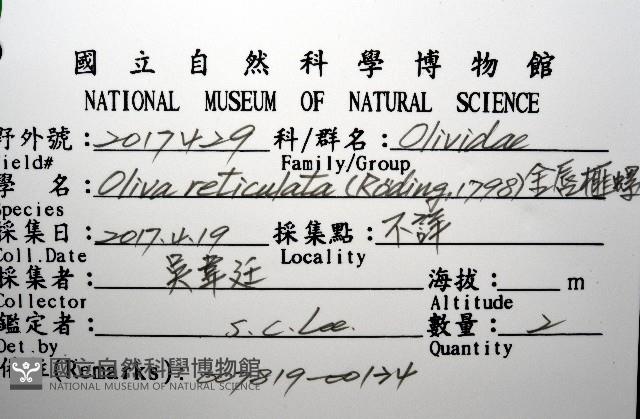 國立自然科學博物館
NATIONAL MUSEUM OF NATURAL SCIENCE
野外號：2017.4.29 科/群名：Olividae
ield# Family/Group
學 名：Oliva reticulata (Röding, 1798) 金唇榧螺
Species
採集日：2017.4.19 採集點：不詳
Coll.Date Locality
採集者：吳韋廷 海拔： m
Collector Altitude
鑑定者：S.C. Lee 數量：2
Det.by Quantity
(Remarks)：
國立自然科學博物館
NATIONAL MUSEUM OF NATURAL SCIENCE